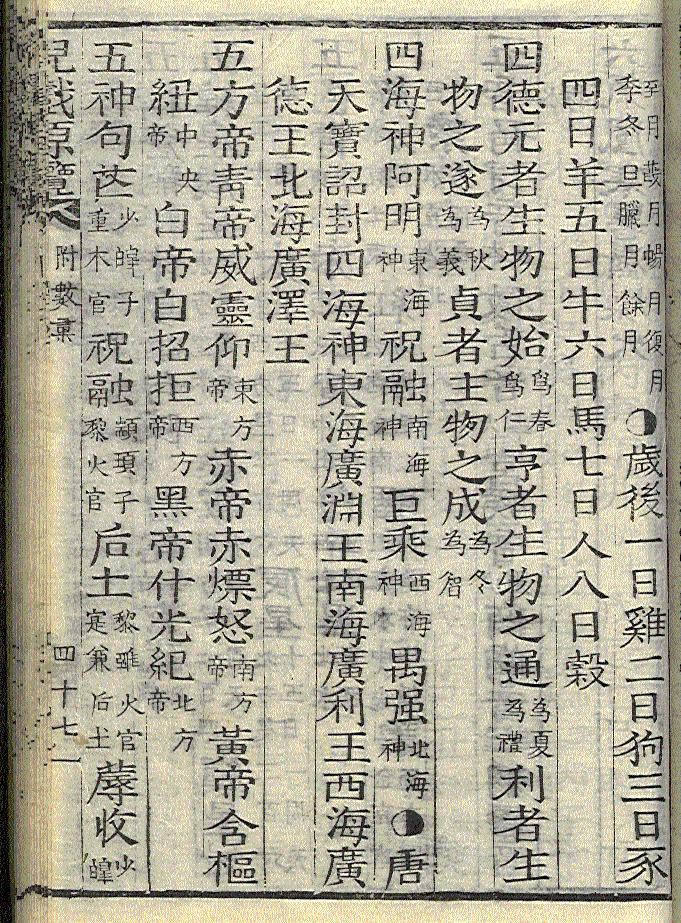 至月葭月暢月復月季冬旦臘月餘月◑歲後一日雞二日狗三日豕
四日羊五日牛六日馬七日人八日穀
四德元者生物之始為春為仁亨者生物之通為夏為禮利者生
物之遂為秋為義貞者主物之成為冬為智
四海神阿明東海神祝融南海神巨乘西海神禺强北海神◑唐
天寶詔封四海神東海廣淵王南海廣利王西海廣
德王北海廣澤王
五方帝靑帝威靈仰東方帝赤帝赤熛怒南方帝黃帝含樞
紐中央帝白帝白招拒西方帝黑帝什光紀北方帝
五神句芒少皥子重木官祝融顓頊子黎火官后土黎雖火官寔兼后土蓐收少皥
兒戱原覽 附數彙 四十七